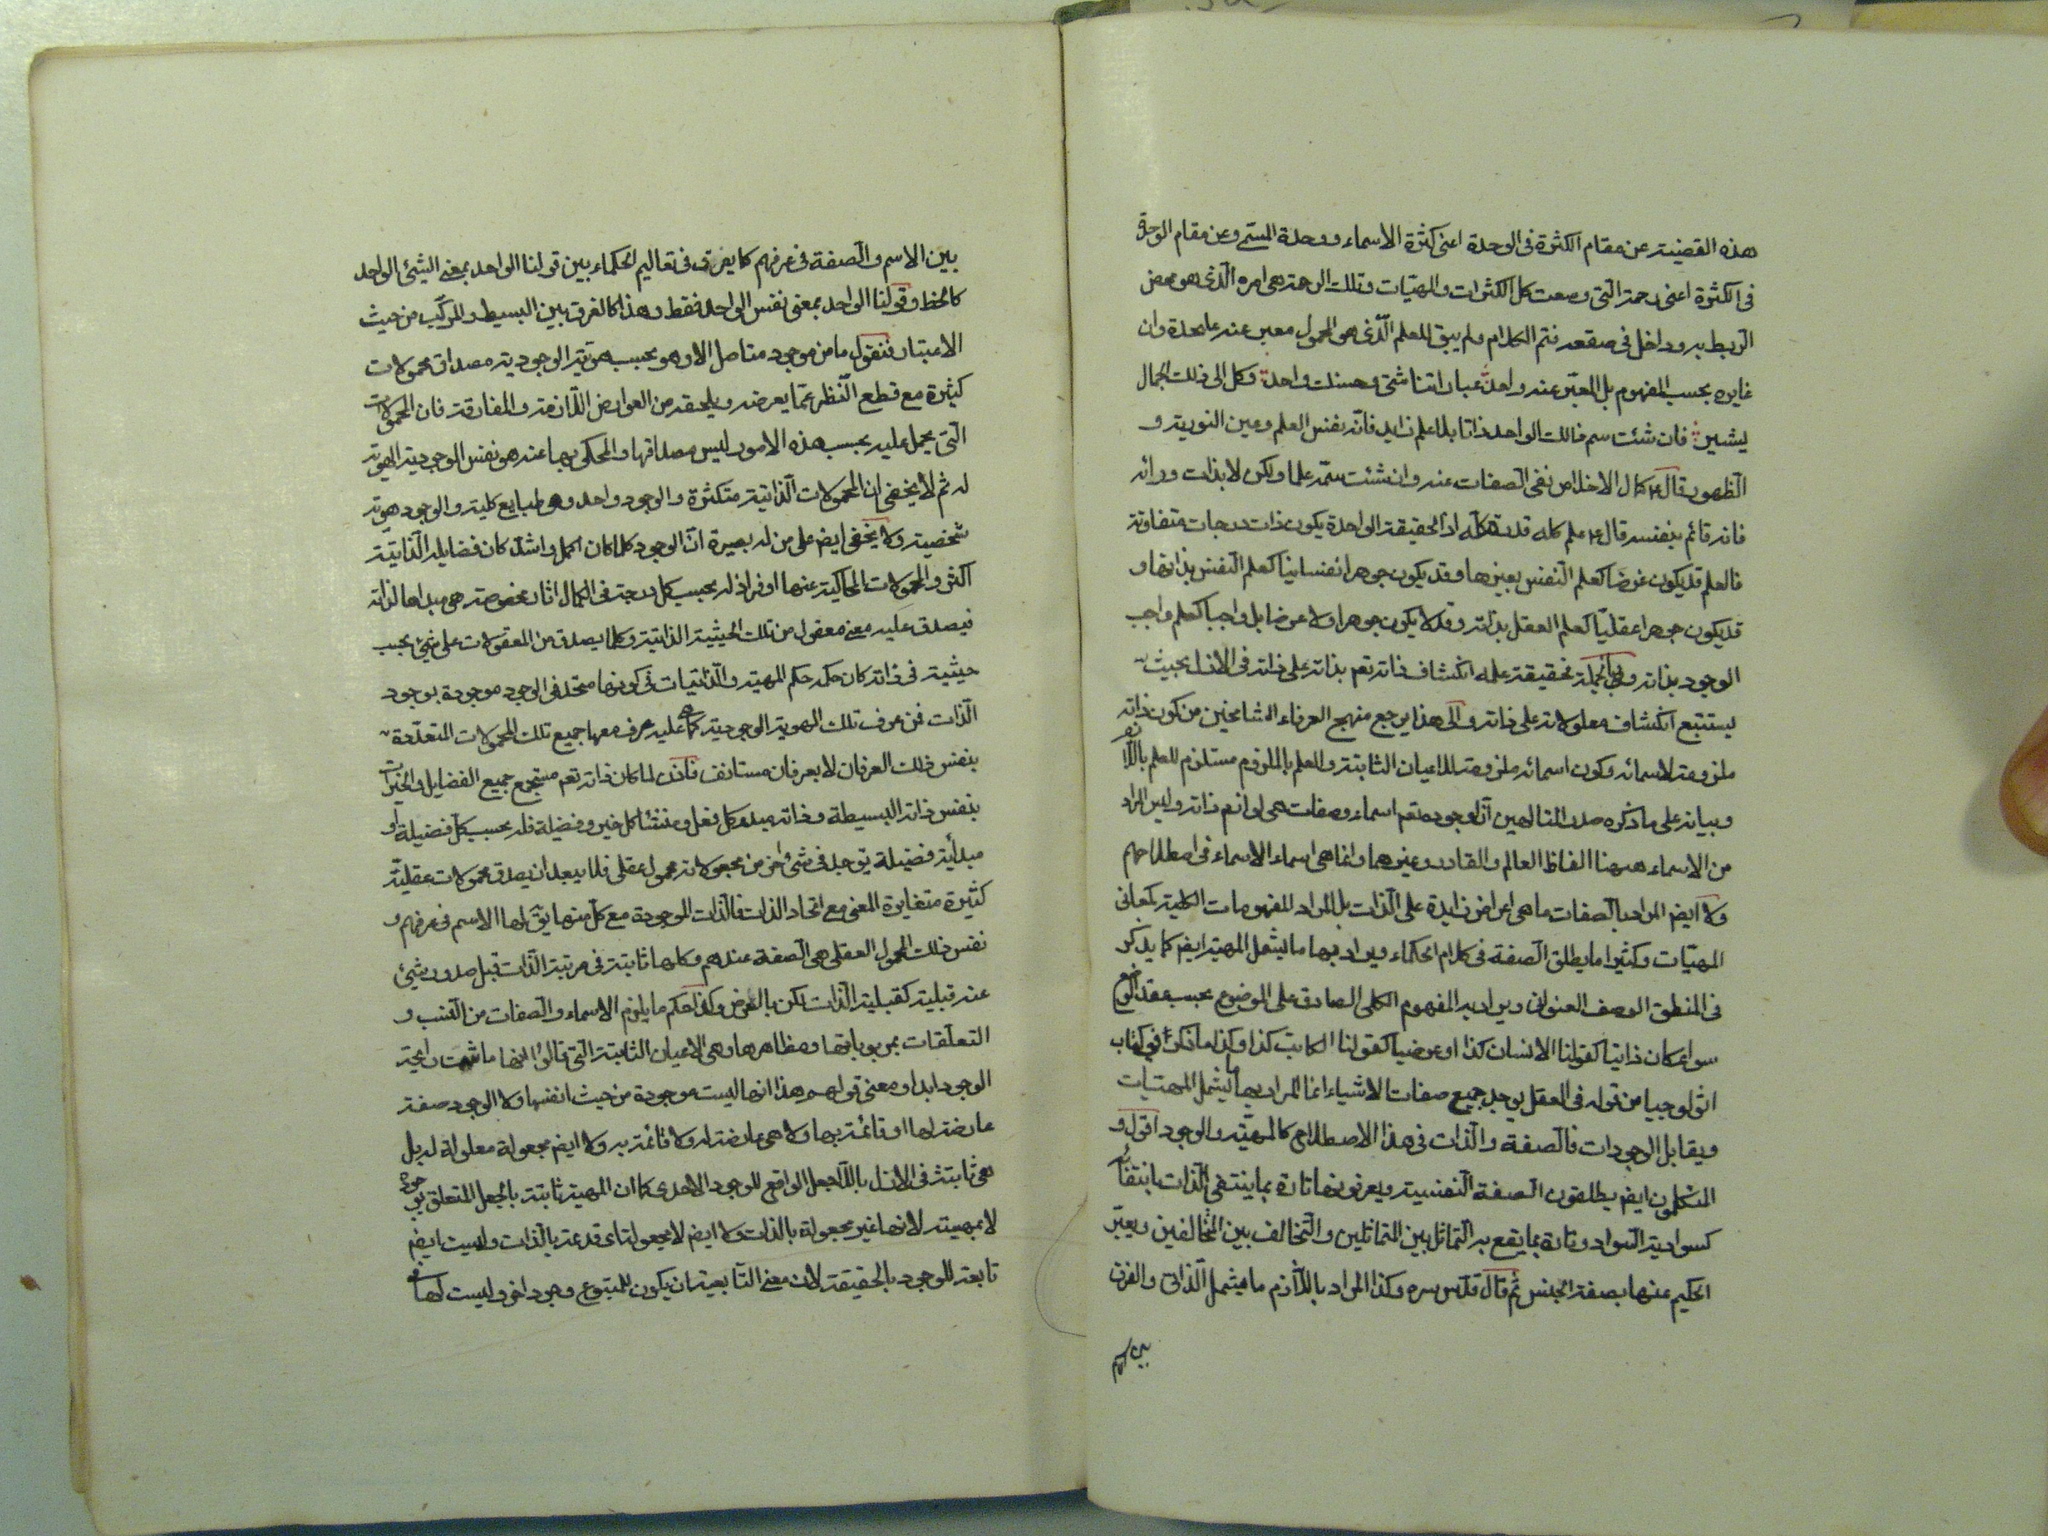 هذه القضية عن مقام الكثرة فى الوحدة اعنى كثرة الاسماء ووحدة المسمى وعن مقام الوحدة
فى الكثرة اعنى رحمة التى وسعت كل الكثرات والمهيّات وتلك الرحمة هى امره الّذى هو محض
الربط به وداخل فى صقعه فتم الكلام ولم يبق للعلم الّذى هو المحمول معبر عنه عليحدة وان
غايره بحسب المفهوم بل المعبّر عنه واحد عباراتنا شتى وحسنك واحد وكل الى ذلك الجمال
يشير فان شئت سم ذالك الواحد ذاتا بلا علم زايد فانّه نفس العلم وعين النورية و
الظهور قال ع كمال الاخلاص نفى الصفات عنه وان شئت سمّه علما ولكن لا بذات ورائه
فانه قائم بنفسه قال ع علم كله قدرة كلّه اذ الحقيقة الواحدة يكون ذات درجات متفاوتة
فالعلم قد يكون عرضا كعلم النفس بغيرها وقد يكون جوهرا نفسانيا كعلم النفس بذاتها و
قد يكون جوهرا عقليّا كعلم العقل بذاته وقد لا يكون جوهرا ولا عرضا بل واجبا كعلم واجب
الوجود بذاته وبالجملة فحقيقة علمه انكشاف ذاته تعم بذاته على ذاته فى الازل بحيث
يستتبع انكشاف معلولاته على ذاته والى هذا يرجع منهج العرفاء الشامخين من كون ذاته
ملزومة لاسمائه وكون اسمائه ملزومة للاعيان الثابتة والعلم بالملزوم مستلزم للعلم باللازم
وبيانه على ما ذكره صدر المتالهين انّ لوجوده تعم اسماء وصفات هى لوازم ذاته وليس المراد
من الاسماء هيهنا الفاظ العالم والقادر وغيرهما وانما هى اسماء الاسماء فى اصطلاحهم
ولا ايضم المراد بالصفات ما هى اعراض زايدة على الذات بل المراد المفهومات الكلية كمعانى
المهيّات وكثيرا ما يطلق الصفة فى كلام الحكماء ويراد بها ما يشمل المهية ايضم كما يذكر
فى المنطق الوصف العنوانى ويراد به المفهوم الكلى الصادق على الموضوع بحسب عقد الوضع
سواء كان ذاتيا كقولنا الانسان كذا او عرضيا كقولنا الكاتب كذا وكذا ما ذكر فى كتاب
اثولوجيا من قوله فى العقل يوجد جميع صفات الاشياء انما المراد بها ما يشمل المهيّات
ويقابل الوجودات فالصفة والذات فى هذا الاصطلاح كالمهيّة والوجود اقول و
المتكلمون ايضم يطلقون الصفة النفسية ويعرفونها تارة بما ينتفى الذات بانتفائه
كسوادية السواد وتارة بما يقع به التماثل بين المتماثلين والتخالف بين المتخالفين ويعبّر
الحكيم عنها بصفة الجنس ثم قال قدّس سره وكذا المراد باللازم ما يشمل الذاتى والفرق
بين الاسم
بين الاسم والصفة فى عرفهم كما يفرق فى تعاليم الحكماء بين قولنا الواحد بمعنى الشيئ الواحد
كالخط وقولنا الواحد بمعنى نفس الواحد فقط وهذا كالفرق بين البسيط والمركّب من حيث
الاعتبار فنقول ما من موجود متاصل الا وهو بحسب هويّته الوجودية مصداق محمولات
كثيرة مع قطع النّظر عمّا يعرضه ويلحقه من العوارض اللّازمة والمفارقة فان المحمولات
التى يحمل عليه بحسب هذه الامور ليس مصداقها والمحكى بها عنه هو نفس الوجودية الهوية
له ثم لا يخفى ان المحمولات الذاتية متكثرة والوجود واحد وهى طبايع كلية والوجود هوية
شخصية ولا يخفى ايضم على من له بصيرة انّ الوجود كلما كان اكمل واشدّ كان فضايله الذاتيّة
اكثر والمحمولات الحاكية عنها اوفر اذ له بحسب كل درجة فى الكمال اثار مخصوصة هى مبداها لذاته
فيصدق عليه معنى معقول من تلك الحيثية الذاتية وكلما يصدق من المعقولات على شيئ بحسب
حيثية فى ذاته كان حكمه حكم المهية والذاتيات فى كونها متحدة فى الوجود موجودة بوجود
الذات فمن عرف تلك الهوية الوجودية كما هى عليه عرف معها جميع تلك المحمولات المتعدّدة
بنفس ذلك العرفان لا بعرفان مستانف فاذن لما كان ذاته تعم مستجمع جميع الفضايل والخيرات
بنفس ذاته البسيطة وذاته مبدء كل فعل ومنشا كل خير وفضيلة فله بحسب كل فضيلة او
مبدأية فضيلة يوجد فى شئ اخر من مجعولاته محمول عقلى فلا يبعد ان يصدق محمولات عقليّة
كثيرة متغايرة المعنى مع اتحاد الذات فالذات الموجودة مع كلّ منها يقّ لها الاسم فى عرفهم و
نفس ذلك المحمول العقلى هى الصفة عندهم وكلها ثابتة فى مرتبة الذات قبل صدور شيئ
عنه قبلية كقبلية الذات لكن بالعرض وكذا حكم ما يلزم الاسماء والصفات من النسب و
التعلّقات بمربوباتها ومظاهرها وهى الاعيان الثابتة التى قالوا انها ما شمت رايحة
الوجود ابدا ومعنى قولهم هذا انها ليست موجودة من حيث انفسها ولا الوجود صفة
عارضة لها او قائمة بها ولا هى عارضة له ولا قائمة به ولا ايضم مجعولة معلولة له بل
هى ثابتة فى الازل باللّا جعل الواقع للوجود الاحدى كما ان المهية ثابتة بالجعل المتعلق بوجوده
لا بمهيته لانها غير مجعولة بالذات ولا ايضم لا مجعولة اى قديمة بالذات وليست ايضم
تابعة للوجود بالحقيقة لان معنى التابعية ان يكون للتبوع وجود اخر وليست لها